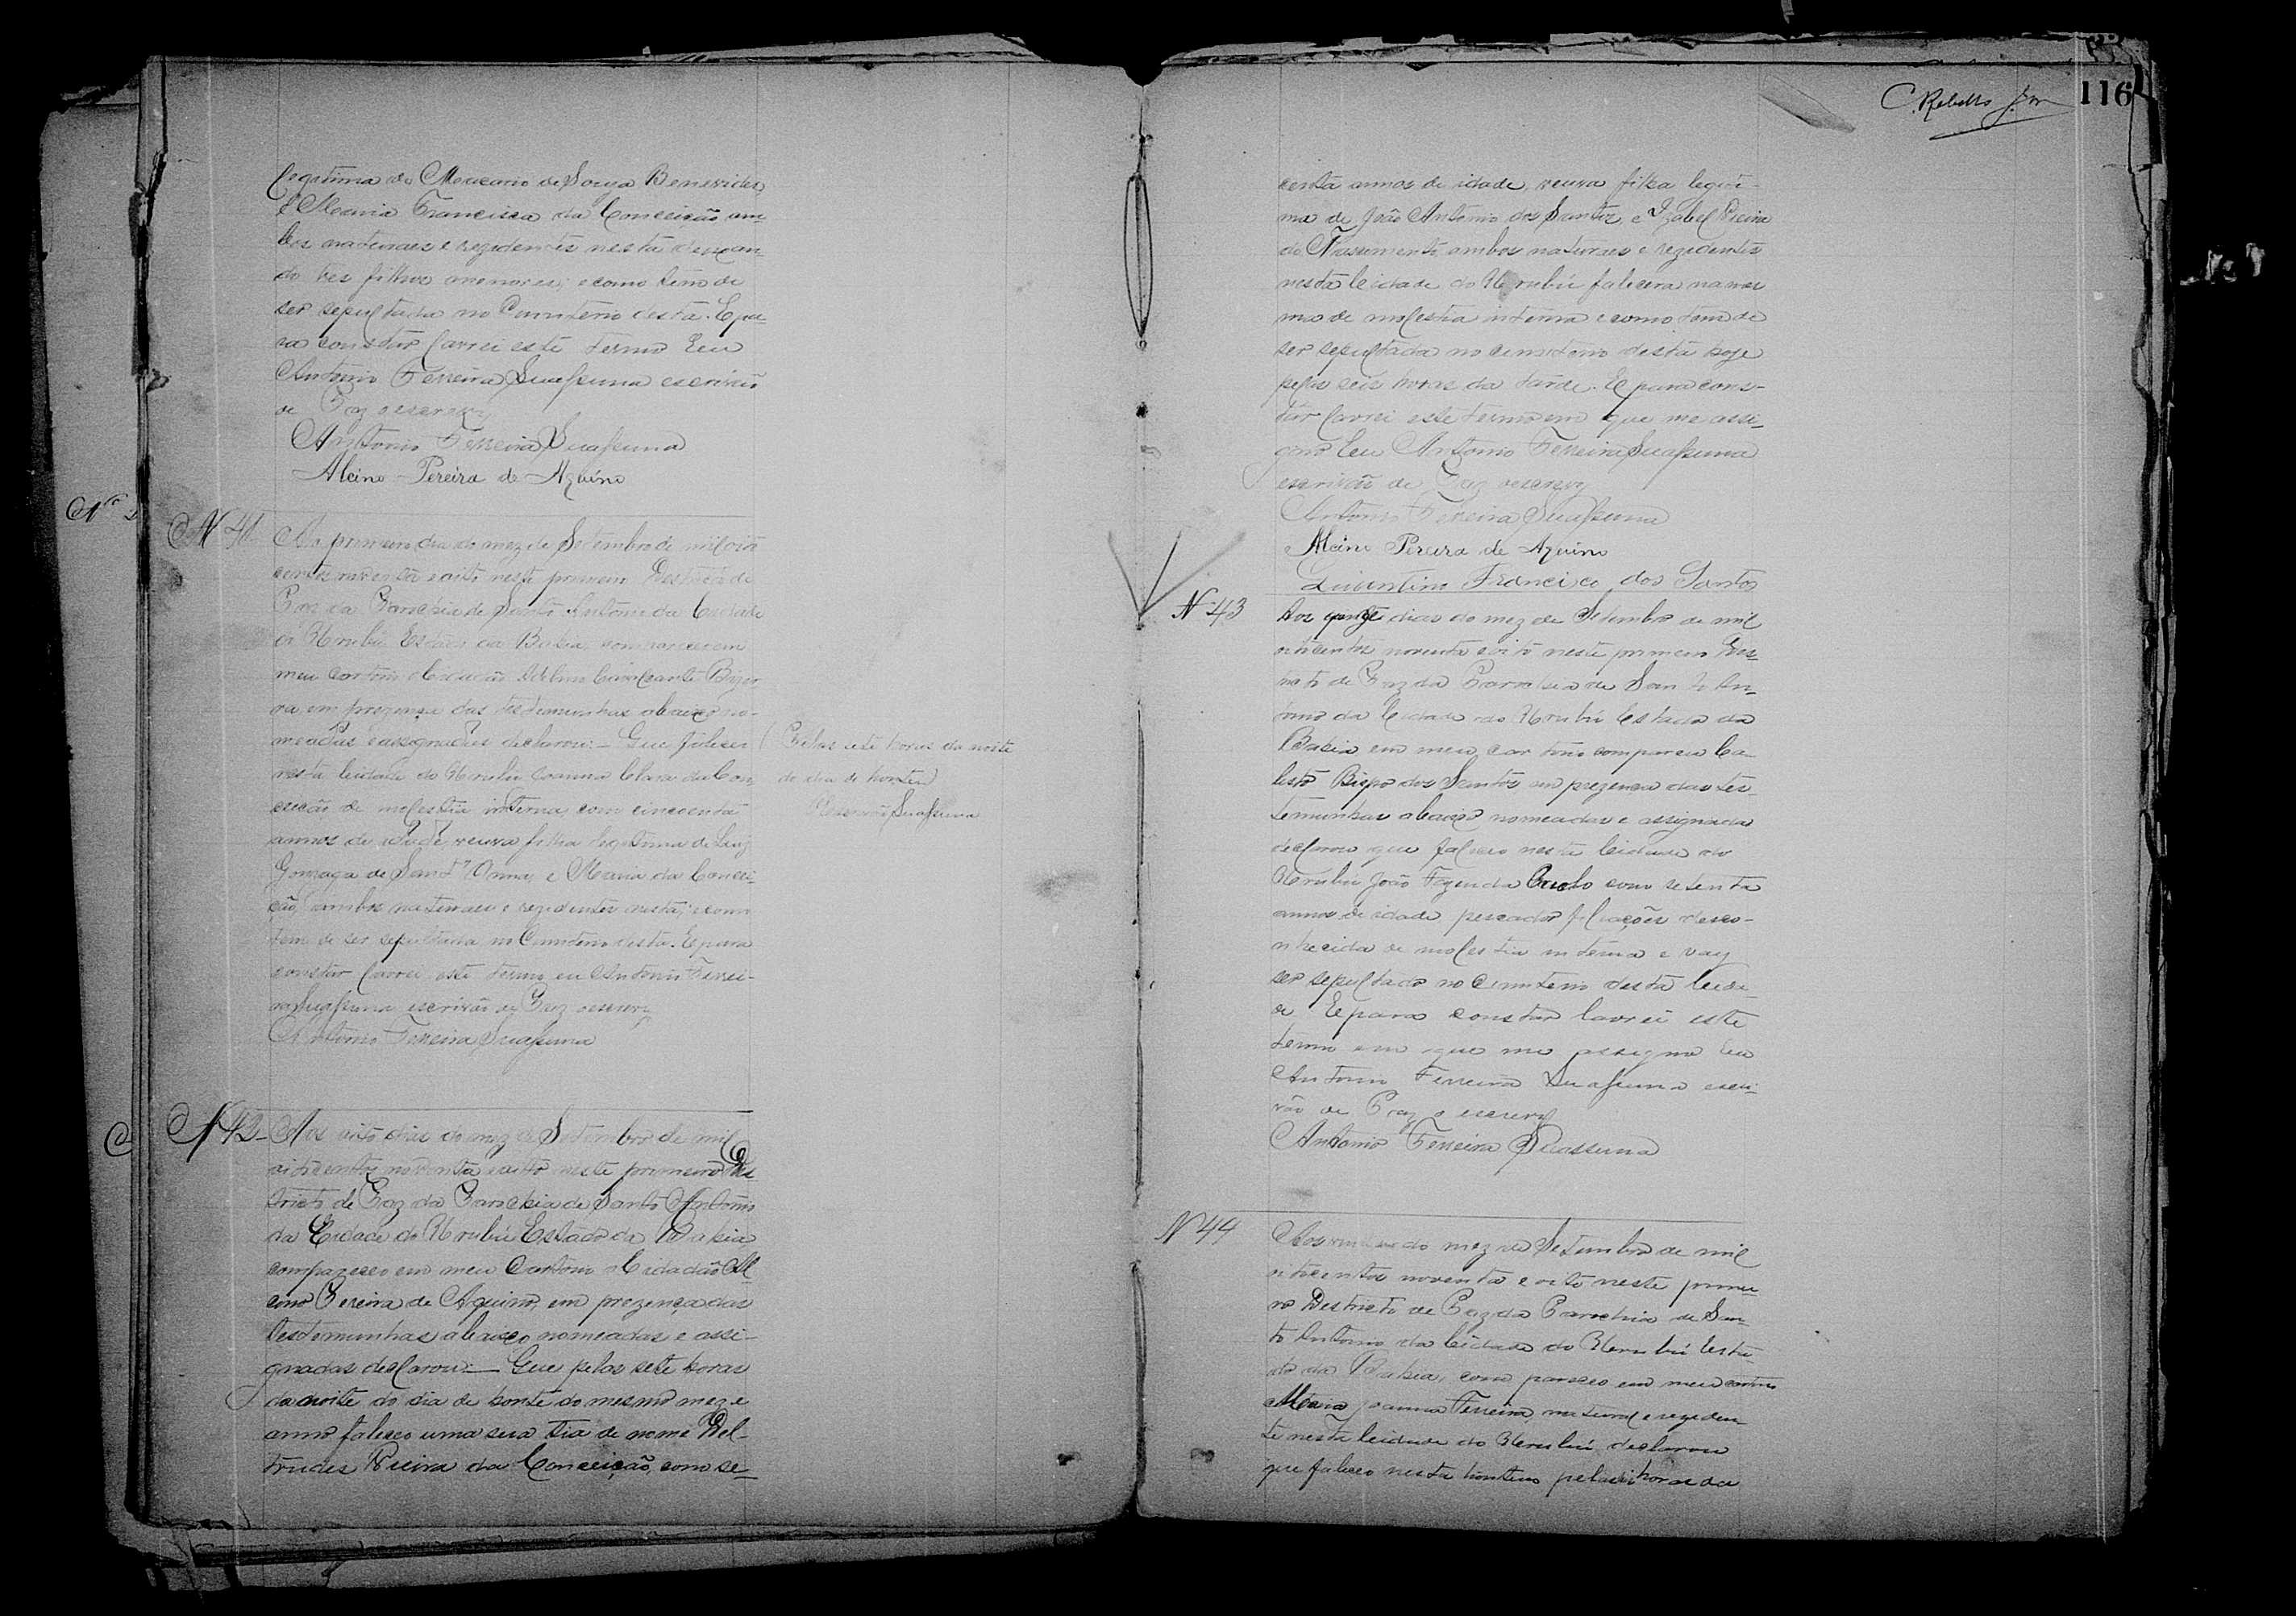 legitima de Macario de Souza Benevides
e Maria Francisca da Conceição am
bos naturaes e rezidentes nesta deixan
do tres filhos menores, e como tem de
ser sepultada no Cemiterio desta. E pa
ra constar lavrei este termo Eeu
Antonio Ferreira Suassuna escrivão
de Paz o escrevy
Antonio Ferreira Suassuna
Alcino Pereira de Aquino
N 41
Ao primeiro dia do mez de Setembro de mil oito
centos noventa e oito neste primeiro Destricto de
Paz da Parochia de Santo Antonio da Cidade
do Urubú Estado da Bahia, compareceo em
meu cartorio o Cidadão Cavalcante
ra, em prezença das testemunhas abaixo no-
meadas e assignadas declarou:- Que faleceu
nesta Cidade do Urubú Joanna Clara da Con
ceição de molestia interna, com cincoenta
annos de idade, veuva filha legitima de Luiz
Gonzaga de Sant'Anna, e Maria da Concei-
ção, ambos naturaes e rezidentes nesta; e como
tem de ser sepultada no Cemiterio desta. E para
constar lavrei este termo eu Antonio Ferrei-
ra Suassuna escrivão de Paz o escrevy
Antonio Ferreira Suassuna
Pelas sete horas da noite
do dia de hontem
Escrivão Suassuna
N 42
Aos oito dias do mez de Setembro de mil
oitocentos noventa e oito neste primeiro Des
tricto de Paz da Parochia de Santo Antonio
da Cidade do Urubú Estado da Bahia
compareceo em meu Cartorio o Cidadão Al
cino Pereira de Aquino, em prezença das
testemunhas abaixo nomeadas e assi-
gnadas declarou:- Que pelas sete horas
da noite do dia de honte do mesmo mez e
anno faleceo uma sua tia de nome Del-
trudes Vieira da Conceição, com se-
C. Rebello
116
centa annos de idade, veuva filha legiti-
ma de João Antonio dos Santos, e Izabel Vieira
do Nascimento, ambos naturaes e rezidentes
nesta Cidade do Urubú falecera na mes
ma de molestia interna e como tem de
ser sepultada no cemiterio desta hoje
pelas seis horas da tarde. E para cons-
tar lavrei este termo em que me assi-
gno Eeu Antonio Ferreira Suassuna
escrivão de Paz o escrevy
Antonio Ferreira Suassuna
Alcino Pereira de Aquino
Quintino Francisco dos Santos
N 43
Aos quinze dias do mez de Setembro de mil
oitocentos noventa e oito neste primeiro Des
tricto de Paz da Parochia de Santo An-
tonio da Cidade do Urubú Estado da
Bahia em meu cartorio compareceu Ca-
listo Bispo dos Santos em prezença das tes-
temunhas abaixo nomeadas e assignada
declarou que faleceo nesta Cidade do
Urubú João Fazenda com setenta
annos de idade pescador filiações desco-
nhecida de molestia interna e vay
ser sepultado no Cemiterio desta Cida-
de E para constar lavrei este
termo em que me assigno Eeu
Antonio Ferreira Suassuna escri-
vão de Paz o escrevy
Antonio Ferreira Suassuna
N 44
Aos do mez de Setembro de mil
oitocentos noventa e oito neste primei-
ro Destricto de Paz da Parochia de San-
to Antonio da Cidade do Urubú Esta-
do da Bahia, compareceo em meu cartorio
Maria Joanna Ferreira, natural e reziden-
te nesta Cidade do Urubú, declarou
que faleceo nesta hontem pelas horas da